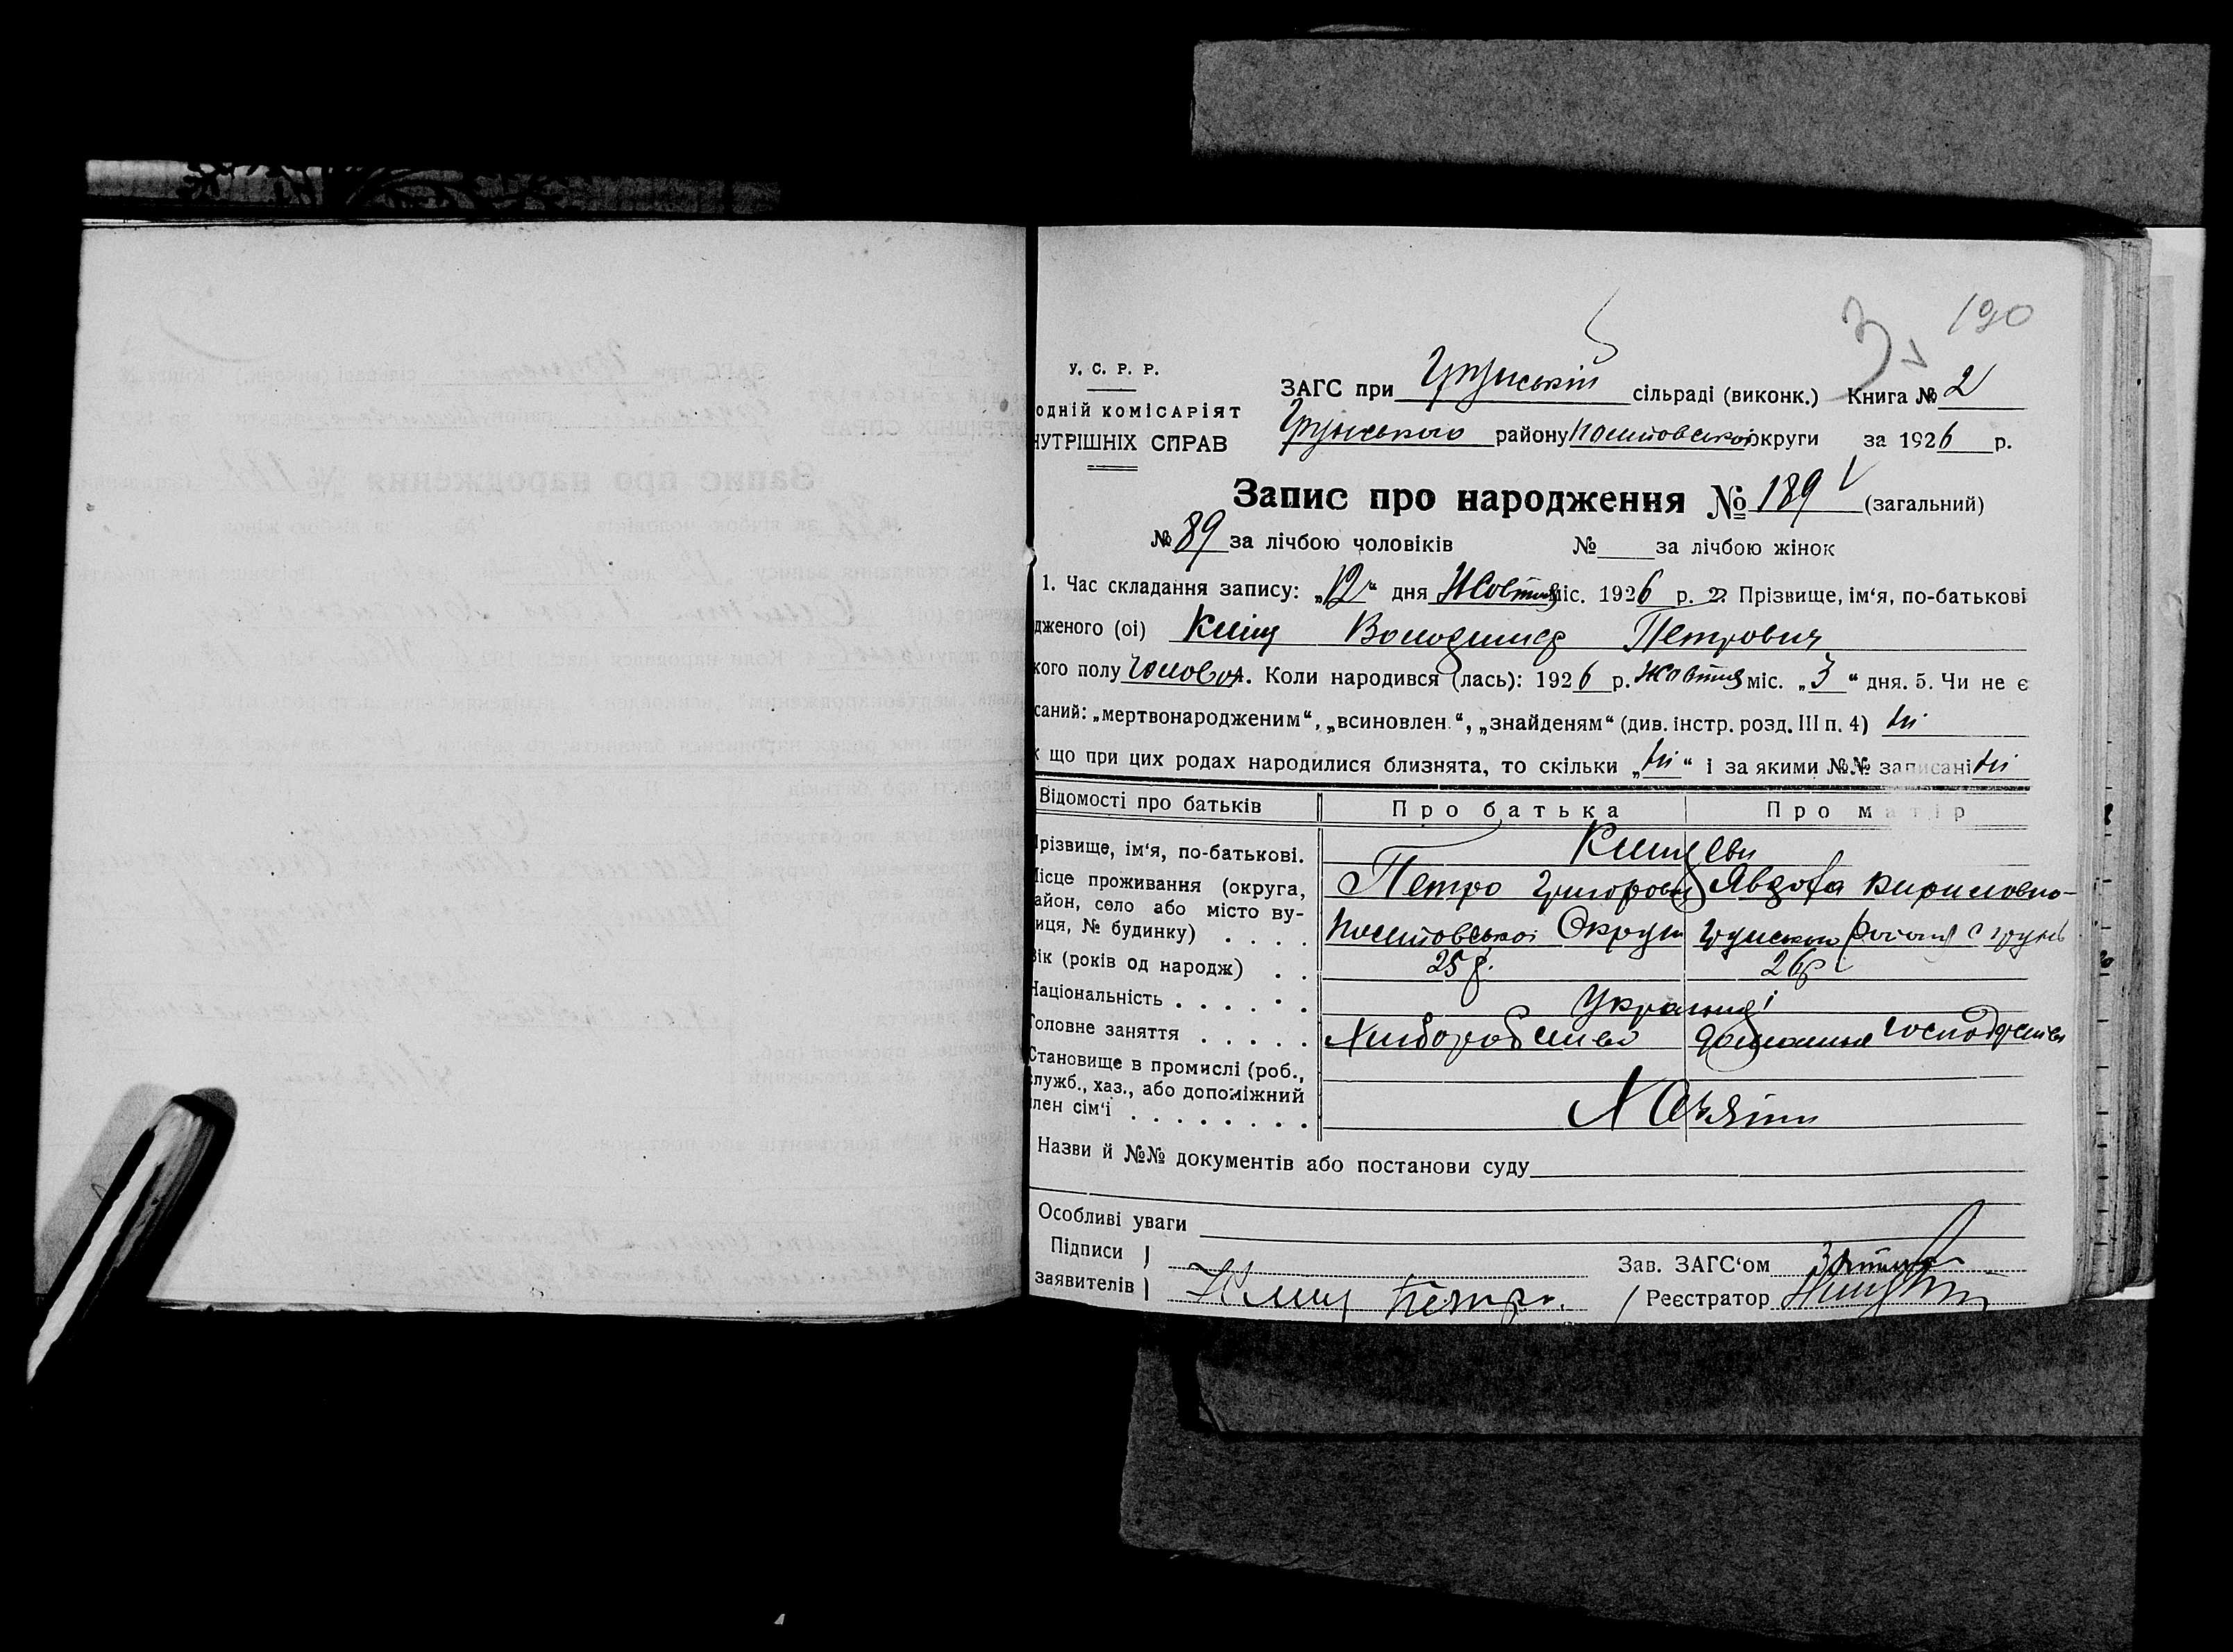 190
У. С. Р. Р.
ЗАГС при Грунській сільраді (виконк.) Книга № 2
одній комісаріят
Грунського району округи за 1926 р.
НУТРІШНІХ СПРАВ
Запис про народження № 189 (загальний)
№ 89 за лічбою чоловіків № за лічбою жінок
1. Час складання запису: „12“ дня Жовтня міс. 1926 р. 2. Прізвище, ім‘я, по-батькові
дженого (ої) Володимир Петрович
кого полу 4. Коли народився (лась): 1926 р. Жовтня міс. „3“ дня. 5. Чи не є
саний: „мертвонародженим“, „всиновлен.“, „знайденям“ (див. інстр. розд. III п. 4) ні
к що при цих родах народилися близнята, то скільки „ні“ і за якими №№ записані ні
Відомості про батьків Про батька Про матір
Прізвище, ім‘я, по-батькові.
Місце проживання (округа, Петро Григорович Явдоха Кириловна
айон, село або місто ву-
иця, № будинку) . . . . Округи Грунського району с Грунь
Вік (років од народж) . . 25 р. 26 р
Національність . . . . . Українці
Головне заняття . . . . . Хліборобство домашнє господарство
Становище в промислі (роб.,
служб., хаз., або допоміжний
лен сім‘ї . . . . . . . . Хазяїни
Назви й №№ документів або постанови суду
Особливі уваги
Підписи
заявителів Петро.
Зав. ЗАГС‘ом
Реєстратор